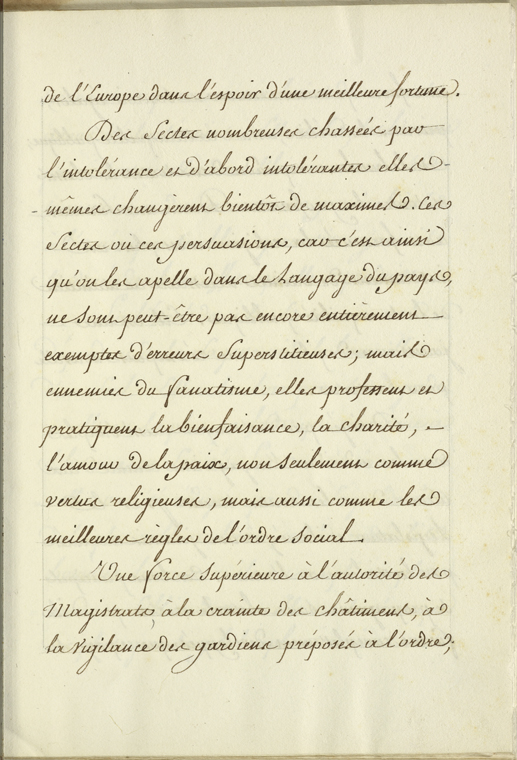 de l'Europe dans l'espoir d'une meilleure fortune.
Des Sectes nombreuses chassées par
l'intolérance et d'abord intolérantes elles-
-mêmes changèrent bientôt de maximes. Ces
Sectes ou ces persuasions, car c'est ainsi
qu'on les apelle dans le Langage du pays,
ne sont peut-être pas encore entièrement
exemptes d'erreurs Superstitieuses; mais
ennemies du fanatisme, elles professent et
pratiquent la bienfaisance, la charité,
l'amour de la paix, non seulement comme
vertus religieuses, mais aussi comme les
meilleures règles de l'ordre social.
Une force supérieure à l'autorité des
Magistrats, à la crainte des châtimens, à
la vigilance des gardiens préposés à l'ordre;